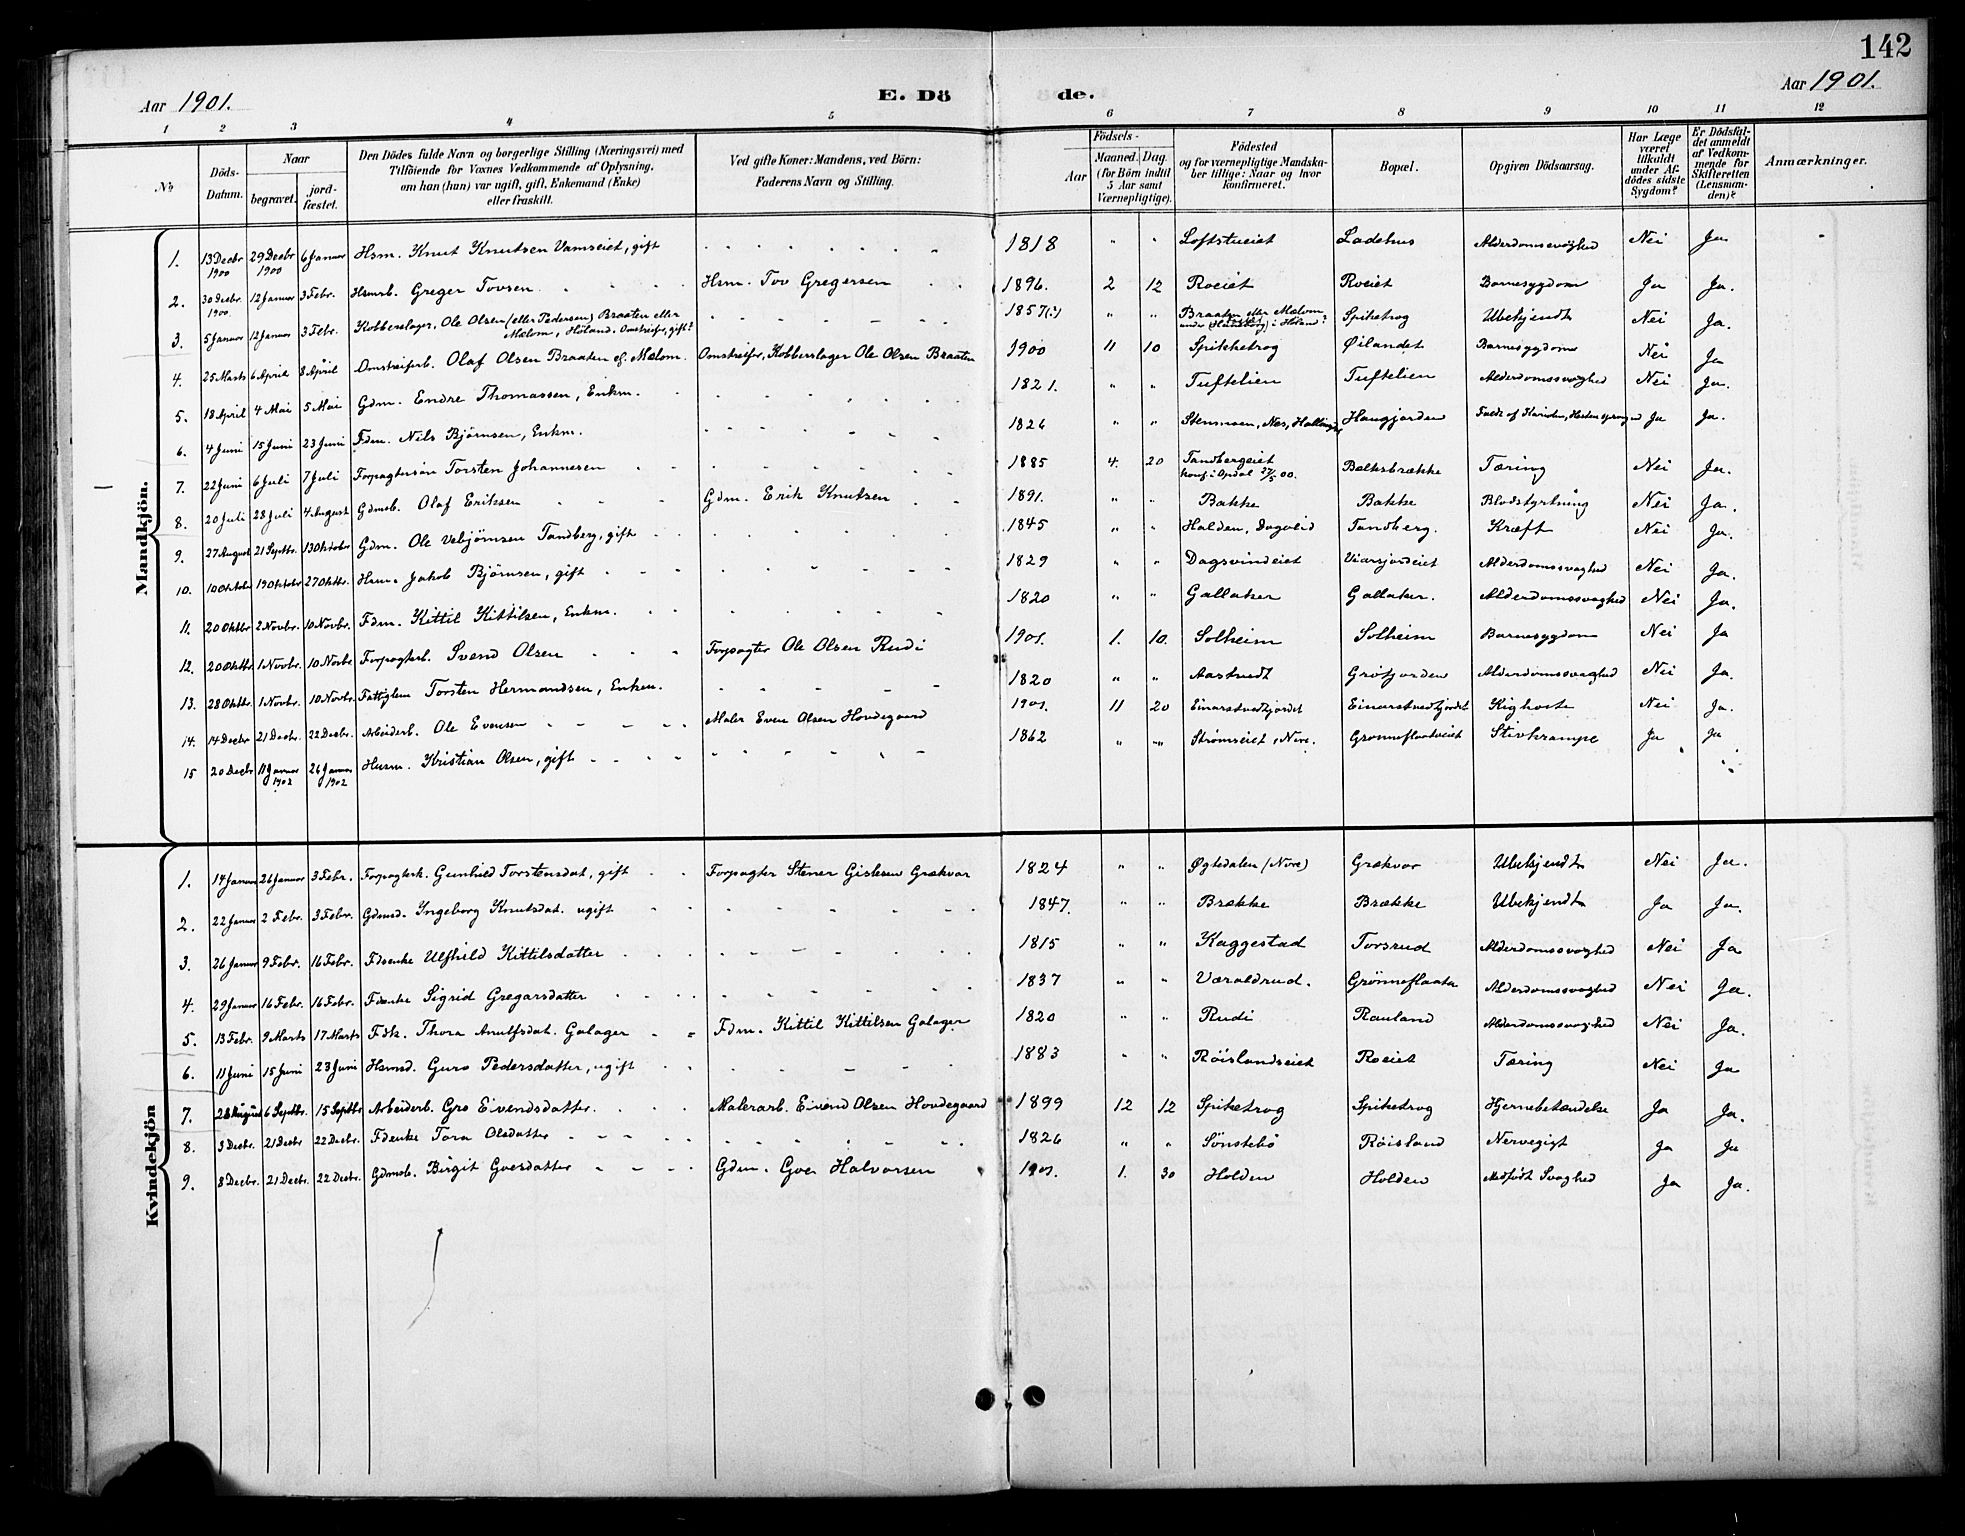 142
Aar 1901.
E. Dö de.
Aar 1901.
1 2 3 4 5 6 7 8 9 10 11 12
No
Döds-Datum.
Naar
begravet.
jord-fæstet.
Den Dödes fulde Navn og borgerlige Stilling (Næringsvei) med
Tilföiende for Voxnes Vedkommende af Oplysning,
om han (hun) var ugift, gift, Enkemand (Enke)
eller fraskilt.
Ved gifte Koner: Mandens, ved Börn:
Faderens Navn og Stilling.
Födsels-
Aar
Maaned. Dag.
(for Börn indtil
5 Aar samt
Værnepligtige).
Födested
og for værnepligtige Mandska-
ber tillige: Naar og hvor
konfirmeret.
Bopæl.
Opgiven Dödsaarsag.
Har Læge
været
tilkaldt
under Af-
dödes sidste
Sygdom?
Er Dödsfal-
det anmeldt
af Vedkom-
mende for
Skifteretten
(Lensman-
den)?
Anmærkninger.
Mandkjön.
1. 13 Decbr 1900 29 Decbr 1900 6 Januar Hsm. Knut Knutsen Vamseiet, gift 1818 " " Loftstueiet Ladehus Alderdomssvaghed Nei Ja
2. 30 Decbr. 1900 12 Januar 3 Febr. Hsmsb. Greger Tovsen Hsm. Tov Gregersen 1896. 2 12 Roeiet Roeiet Barnesygdom Ja Ja.
3. 5 Januar 12 Januar 3 Febr. Kobberslager, Ole Olsen (eller Pedersen) Braaten eller Mælom, Höland. Omstreifer, gift? 1857(?) " " Braaten eller Mælom under i Höland? Spiketrog Ubekjendt Nei Ja.
4. 25 Marts 6 April 8 April Omstreiferb. Olaf Olsen Braaten el. Mælom. Omstreifer, Kobberslager Ole Olsen Braaten 1900 11 10 Spikketrog Øilandet Barnesygdom Nei Ja
5. 18 April 4 Mai 5 Mai Gdm. Endre Thomassen, Enkm. 1821. " " Tuftelien Tuftelien Alderdomssvaghed Nei Ja.
6. 4 Juni 15 Juni 23 Juni Fdm. Nils Bjørnsen, Enkm. 1826 " " Stenmoen, Næs, Haugjorden Ja Ja.
7. 22 Juni 6 Juli 7 Juli Forpagtersön Torsten Johannesen 1885 4. 20 Tandbergeiet konf. i Opdal 27/5 00. Bæksbrække Tæring Nei Ja.
8. 20 Juli 28 Juli 4 August Gdmsb. Olaf Eriksen Gdm. Erik Knutsen 1891. " " Bakke Bakke Blodstyrtning Nei Ja.
9. 27 August 21 Septbr. 13 Oktober Gdm. Ole Vebjørnsen Tandberg, gift 1845 " " Halden, Dagolid Tandberg. Kræft Nei Ja.
10. 10 Oktober 19 Oktober 27 Oktbr. Hsm. Jakob Bjørnsen, gift 1829 " " Dagsvindeiet Alderdomssvaghed Nei Ja.
11. 20 Oktbr 2 Novbr. 10 Novbr. Fdm. Kittil Kittilsen, Enkm. 1820 " " Gallaker Gallaker. Alderdomssvaghed Nei Ja.
12. 20 Oktbr. 1 Novbr. 10 Novbr. Forpagterb. Svend Olsen Forpagter Ole Olsen Rudi 1901. 1. 10. Solheim Solheim Barnesygdom Nei Ja
13. 28 Oktbr. 1 Novbr. 10 Novbr. Fattiglem Torsten Hermandsen, Enkm. 1820 " " Aastvedt Gröfjorden Alderdomssvaghed Nei Ja.
14. 14 Decbr 21 Decbr. 22 Decbr. Arbeiderb. Ole Evensen Maler Even Olsen Hovdegaard 1901. 11 20 Einarstvedtjordet Einarstvedtjordet Kighoste Nei Ja.
15 20 Decbr 11 Januar 1902 26 Januar 1902 Husm. Kristian Olsen, gift 1862 " " Strømseiet, Nore. Grønneflaatveiet Stivkrampe Ja Ja
Kvindekjön
1. 14 Januar 26 Januar 3 Febr. Forpagterk. Gunhild Torstensdat, gift Forpagter Stener Gislesen Grækvar 1824 " " Øgtedalen (Nore) Grækvar Ubekjendt Nei Ja.
2. 22 Januar 2 Febr. 3 Febr. Gdmsd. Ingeborg Knutsdat. ugift 1847. " " Brække Brække Ubekjendt Ja Ja.
3. 26 Januar 9 Febr. 16 Febr. Fdsenke Ulfhild Kittilsdatter 1815 " " Kaggestad Torsrud Alderdomssvaghed Nei Ja
4. 29 Januar 16 Febr. 16 Febr. Fdenke Sigrid Gregarsdatter 1837 " " Væraldrud. Grønneflaata Alderdomssvaghed Nei Ja.
5. 13 Febr. 9 Marts 17 Marts Fdk. Thora Anulfsdat. Galager Fdm. Kittil Kittilsen Galager 1820 " " Rudi Rauland Alderdomssvaghed Nei Ja.
6. 11 Juni 15 Juni 23 Juni Hsmsd. Guro Pedersdatter, ugift 1883 " " Røislandseiet Roeiet Tæring Nei Ja
7. 28 August 6 Septbr. 15 Septbr Arbeiderb. Gro Eivendsdatter. Malerarb. Eivend Olsen Hovdegaard 1899 12 12 Spiketrog Spiketrog Hjernebetændelse Ja Ja.
8. 3 Decbr. 21 Decbr 22 Decbr. Fdenke Tora Olsdatter 1826 " " Sønstebö Røisland Nervegigt Ja Ja
9. 8 Decbr. 21 Decbr. 22 Decbr. Gdmsb. Birgit Goesdatter Gdm. Goe Halvorsen 1901. 1. 30 Holden Holden Medfödt Svaghed Ja Ja.